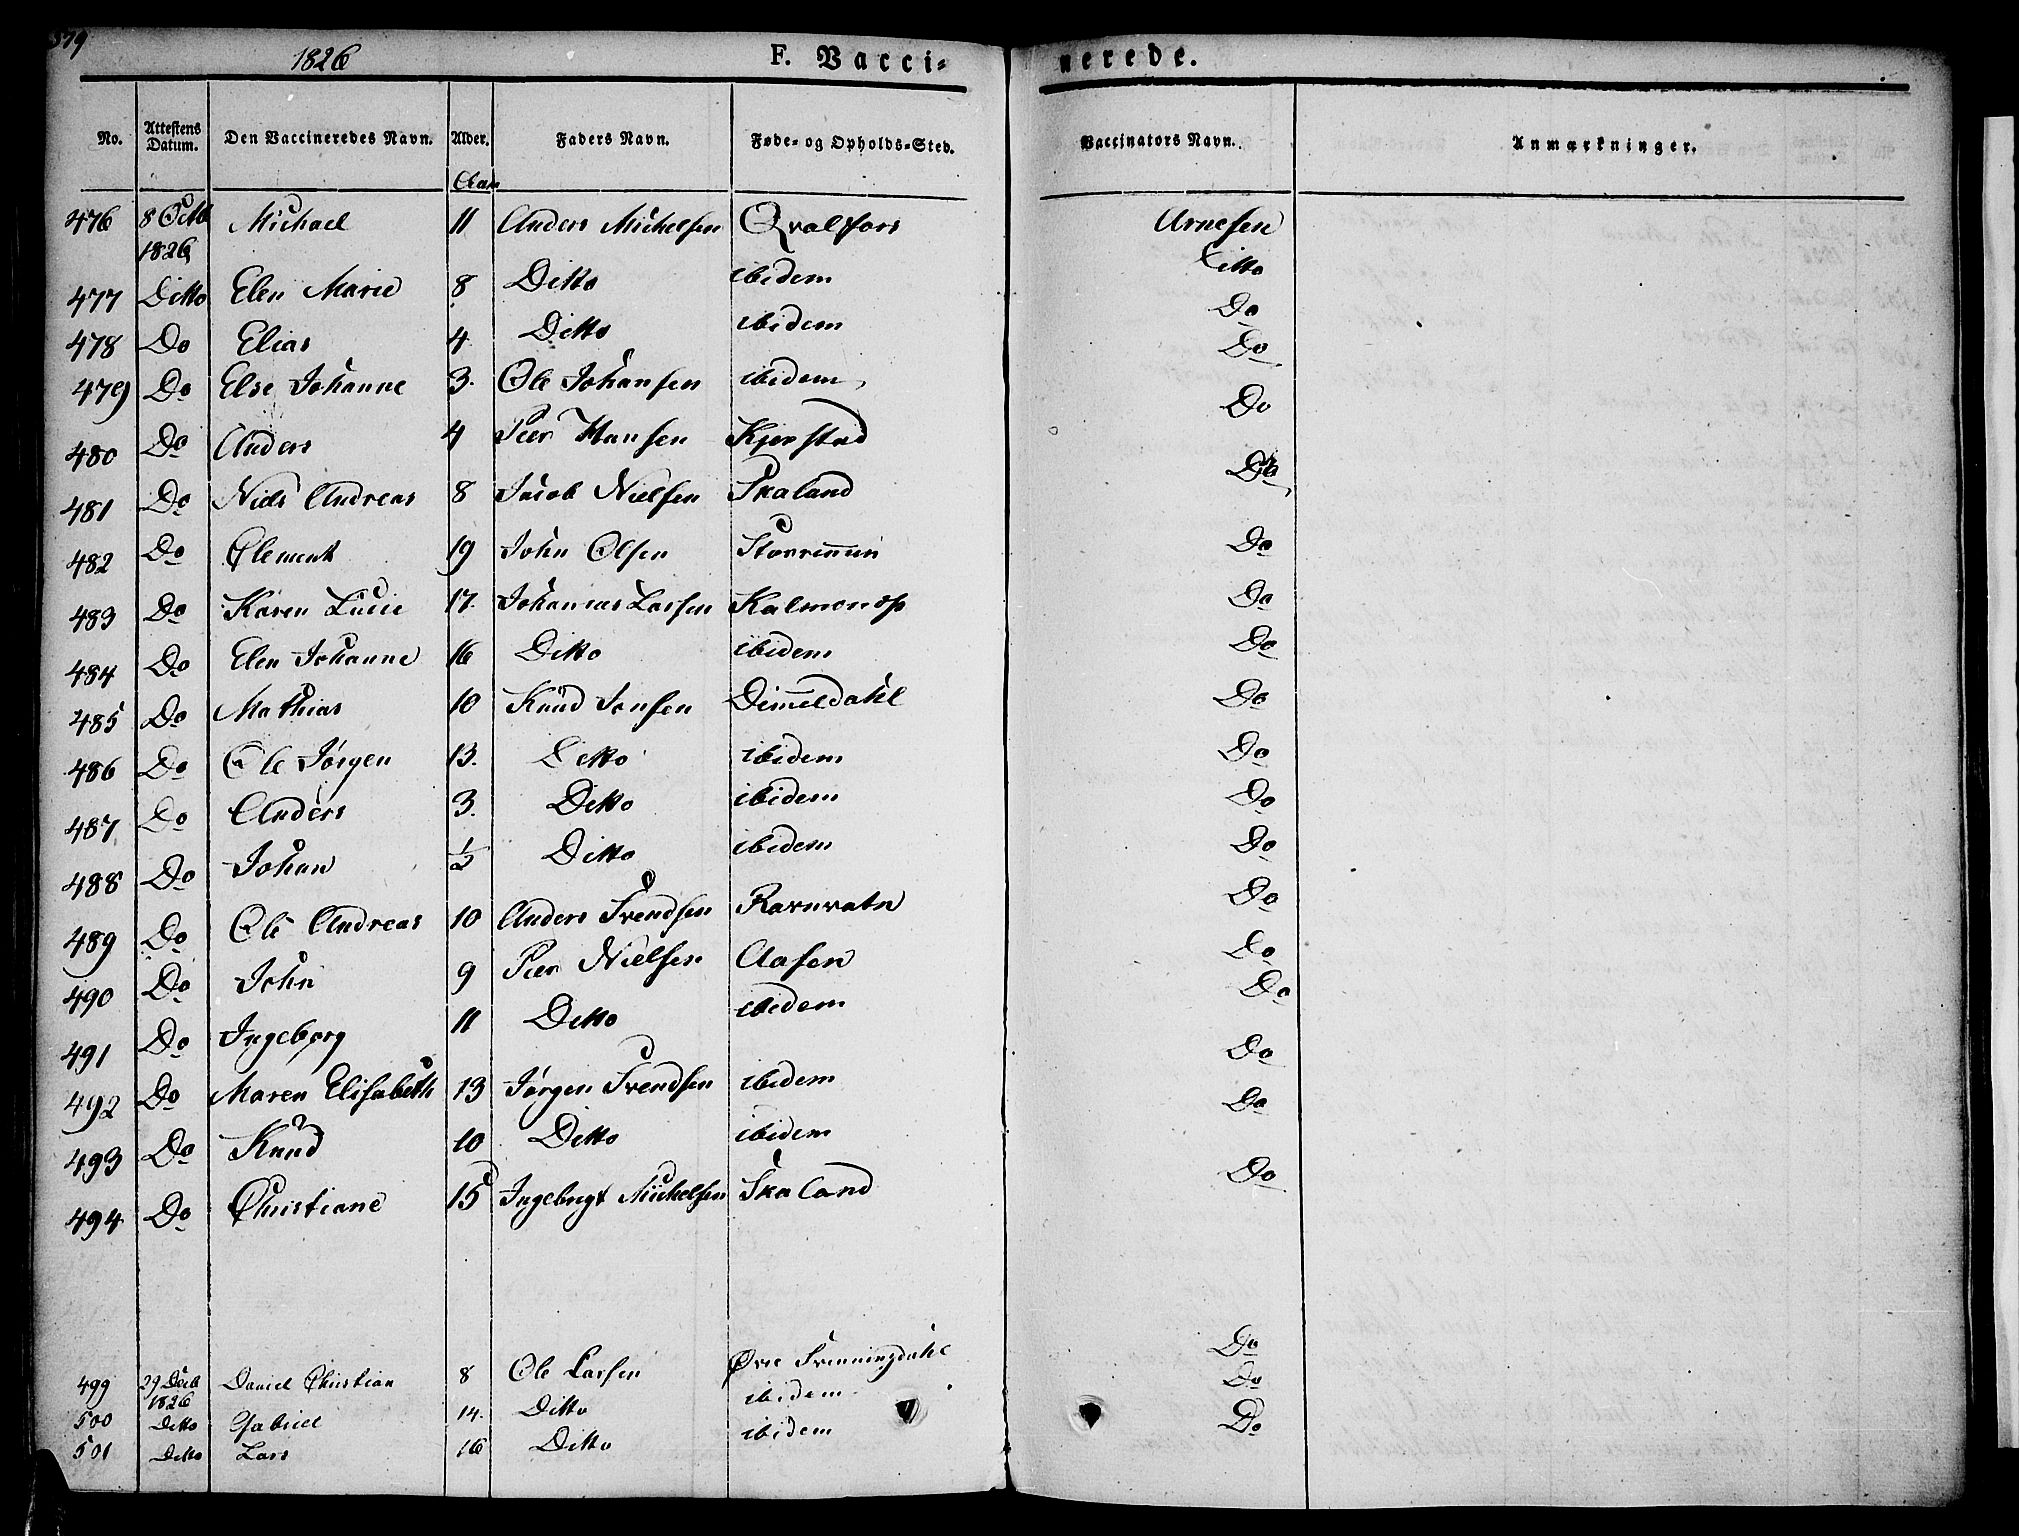 379
1826 F. Vacci= nerede.
No. Attestens Datum. Den Vaccineredes Navn. Alder. Faders Navn. Føde- og Opholds-Sted. Vaccinators Navn. Anmærkninger.
Aar
476 8 Octb 1826 Michael 11 Anders Michelsen Qvalfors Arnesen
477 Ditto Elen Marie 8 Ditto ibidem Ditto
478 Do Elias 4 Ditto ibidem Do
479 Do Else Johanne 3. Ole Johansen ibidem Do
480 Do Anders 4 Peer Hansen Kjerstad Do
481 Do Niels Andreas 8 Jacob Nielsen Skaland Do
482 Do Clement 19 John Olsen Do
483 Do Karen Lucie 17. Johannes Larsen Do
484 Do Elen Johanne 16 Ditto ibidem Do
485 Do Mathias 10 Knud Jonsen Dimeldahl Do
486 Do Ole Jørgen 13. Ditto ibidem Do
487 Do Anders 3. Ditto ibidem Do
488 Do Johan 1/2 Ditto ibidem Do
489 Do Ole Andreas 10 Anders Svendsen Ravnvatn Do
490 Do John 9 Peer Nielsen Aasen Do
491 Do Ingeborg 11 Ditto ibidem Do
492 Do Maren Elisabeth 13 Jørgen Svendsen ibidem Do
493 Do Knud 10 Ditto ibidem Do
494 Do Christiane 15 Ingebrigt Michelsen Skaland Do
499 29 Decb 1826 Daniel Christian 8 Ole Larsen Øvre Svenningdahl Do
500 Ditto Gabriel 14. Ditto ibidem Do
501 Ditto Lars 16 Ditto ibidem Do